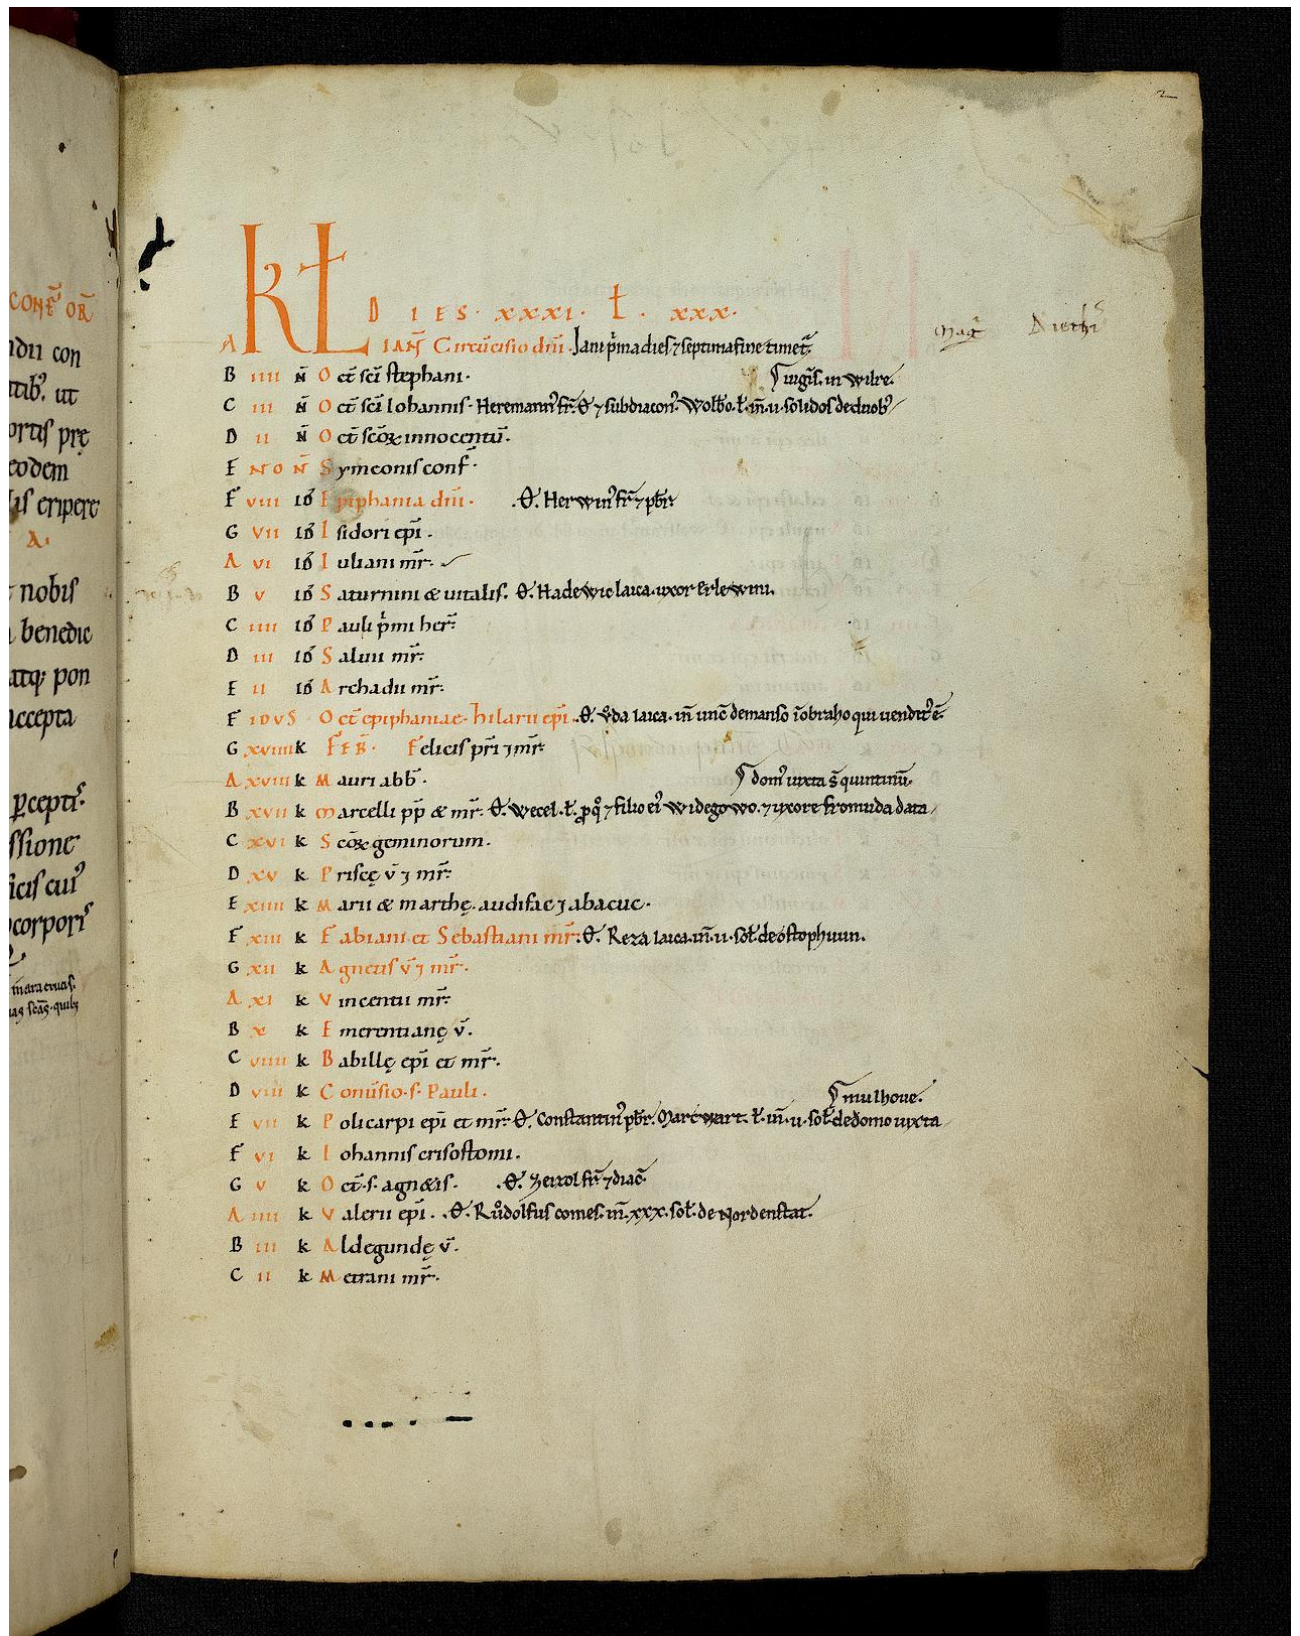 2
CONF̄ OR̄
KL DIES. XXXI. L. XXX.
A IAN̄ Circūcisio dn̄i. Jani p̄ma dies ⁊ septima fine timet̄.
B IIII N̄ Oct̄ sc̄i stephani. uigs̄. in wilre.
C III N̄ Oct̄ sc̄i Iohannis. Heremann' fr̄. Ө ⁊ subdiacon'. Wolbo. ł. in̄. u. solidos de duob'
D II N̄ Oct̄ sc̄oꝝ innocentū.
E NO N̄ Symeonis conf̄.
F VIII ID Epiphania dn̄i. .Ө. Herwin' fr̄ ⁊ pbr̄.
G VII ID Isidori ep̄i.
A VI ID Iuliani mr̄.
B V ID Saturnini & uitalis. Ө. Hadewic laica. uxor Erlewini.
C IIII ID Pauli p̄mi her̄.
D III ID Saluii mr̄.
E II ID Archadii mr̄.
F IDVS Oct̄ epiphaniae. hilarii ep̄i. .Ө. Vͦda laica. in̄ unc̄ de manso ī obraho qui uendit' ē.
G XVIIII k FEB̄. Felicis pr̄i ⁊ mr̄.
A XVIII k Mauri abb̄. dom' iuxta s̄ quintinū.
B XVII k Marcelli pp̄ & mr̄. Ө. Wecel. ł. ꝓ q' ⁊ filio ei' Widegowo. ⁊ uxore fromuda data
C XVI k Sc̄oꝝ geminorum.
D XV k Priscę v̄ ⁊ mr̄.
E XIIII k Marii & marthę. audifac ⁊ abacuc.
F XIII k Fabiani et Sebastiani mr̄. Ө. Reza laica. in̄. u. sol̄. de ostophuun.
G XII k Agnetis v̄ ⁊ mr̄.
A XI k Vincentii mr̄.
B X k Emerentianę v̄.
C VIIII k Babillę ep̄i et mr̄.
D VIII k Conūsio. s. Pauli. mulhoue.
E VII k Policarpi ep̄i et mr̄. Ө. Constantin' pbr̄. Marcwart. ł. in̄. u. sol̄. de domo iuxta
F VI k Iohannis crisostomi.
G V k Oct̄. s. agn&is. .Ө. Zeizol fr̄ ⁊ diac̄.
A IIII k Valerii ep̄i. .Ө. Růdolfus comes. in̄. xxx. sol̄. de Nordenstat.
B III k Aldegundę v̄.
C II k Metrani mr̄.